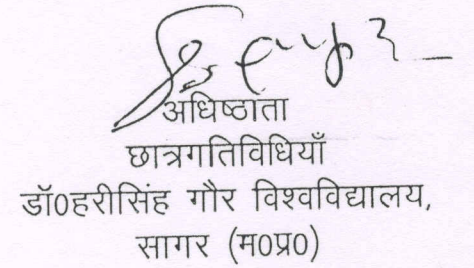 अधिष्ठाता
छात्रगतिविधियाँ
डॉ0हरीसिंह गौर विश्वविद्यालय,
सागर (म0प्र0)